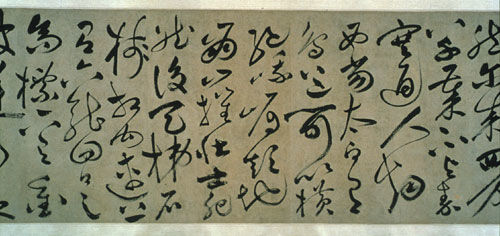 然爾來四萬
八千歲不與秦
塞通人烟
西當太白有
鳥道可以橫
絕峨嵋巔地
崩山摧壯士死
然後天梯石
棧相連上
有六龍回日之
高標下有